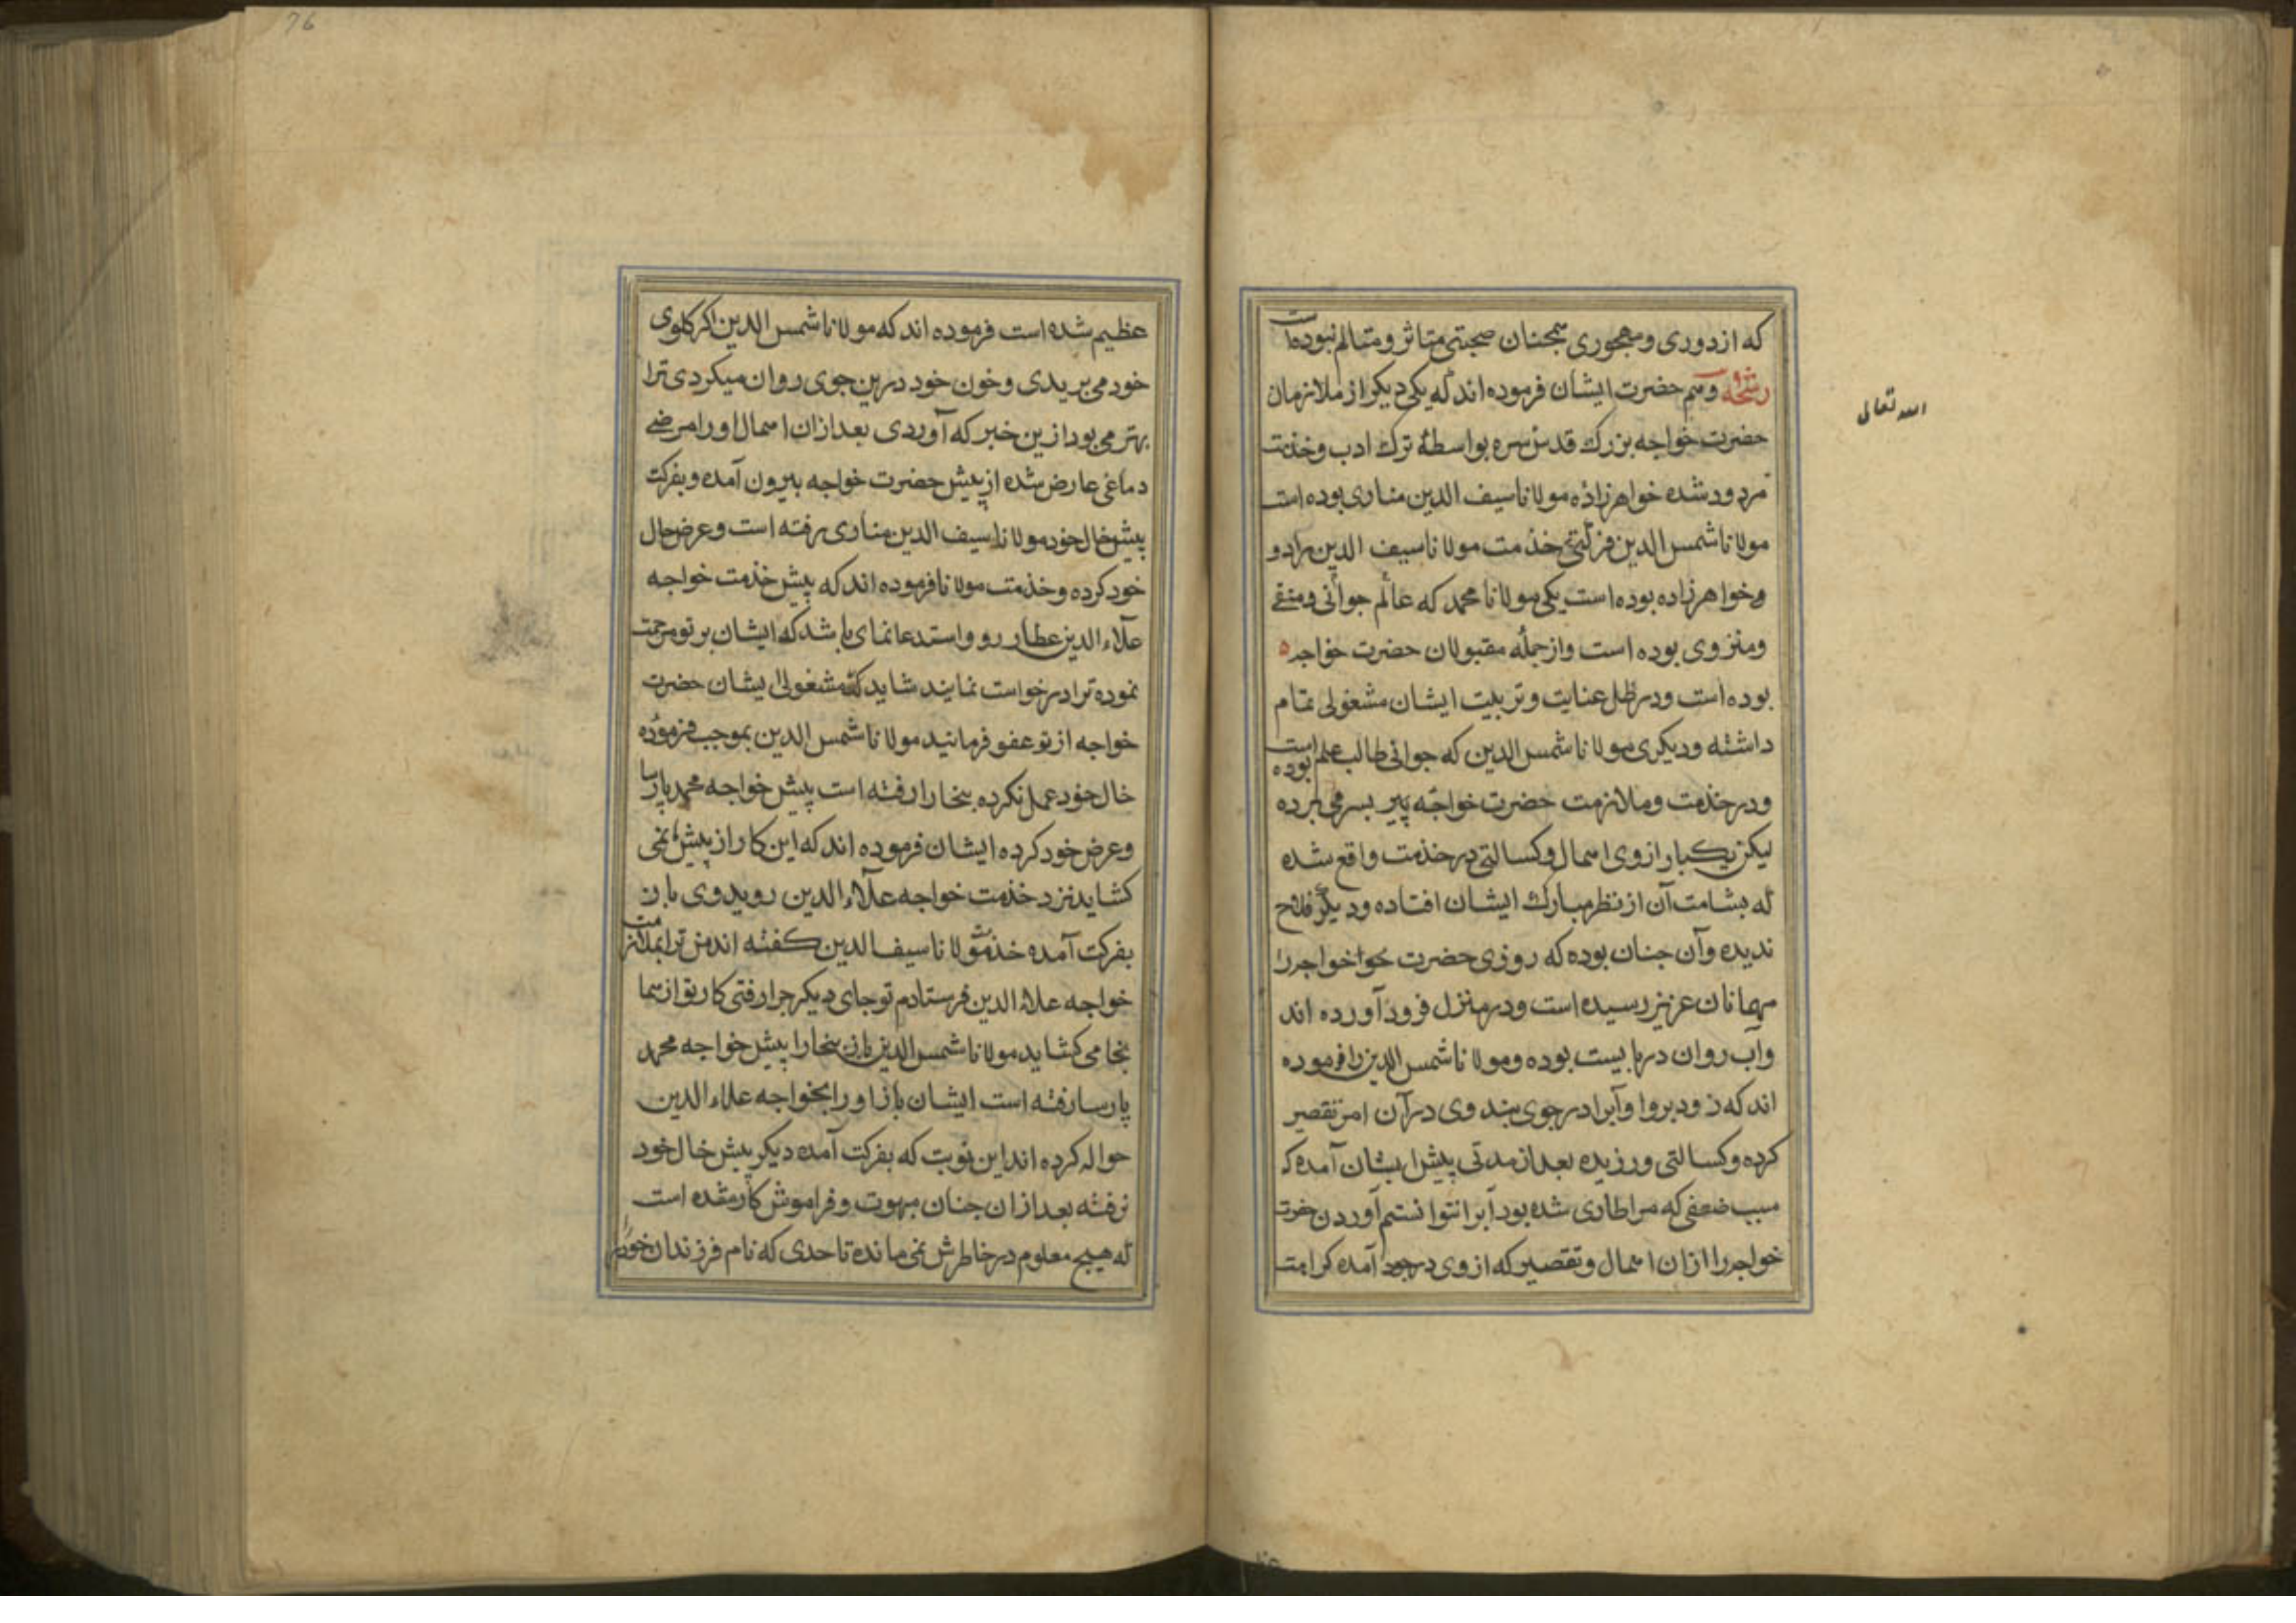 که از دوری و مهجوری همجنان صحبتی متاثر و متالم نبوده است
رشحه و هم حضرت ایشان فرموده اند که یکی دیکر از ملازمان
حضرت خواجه بزرک قدس سره بواسطهٔ ترک ادب و خدمت
مردود شده خواهرزاده مولانا سیف الدین مناری بوده است
مولانا شمس الدین فرکتی خدمت مولانا سیف الدین را دو
و خواهرزاده بوده است یکی مولانا محمد که عالم جوانی و متقی
و منزوی بوده است و از جمله مقبولان حضرت خواجه
بوده است و در ظل عنایت و تربیت ایشان مشغولی تمام
داشته و دیکری مولانا شمس الدین که جوانی طالب علم بوده است
و در خدمت و ملازمت حضرت خواجه پیر بسر می برده
لیکن یکبار از وی اهمال و کسالتی در خدمت واقع شده
که بشامت آن از نظر مبارک ایشان افتاده و دیکر فلاح
ندیده و آن جنان بوده که روزی حضرت خوا خواجه را
مهمانان عزیز رسیده است و در منزل فرود آورده اند
و اب روان دربایست بوده و مولانا شمس الدین را فرموده
اند که زود بروا و آبرا در جوی بند وی در آن امر تقصیر
کرده و کسالتی ورزیده بعد از مدتی پیش ایشان آمده که
سبب ضعفی که مرا طاری شده بود آبرا نتوانستم آوردن حضرت
خواجه را ازان اهمال و تقصیر که از وی در وجود آمده کراهت
الله تعالی
76
عظیم شده است فرموده اند که مولانا شمس الدین اکر کلوی
خود می بریدی و خون خود درین جوی روان میکردی ترا
بهتر می بود ازین خبر که آوردی بعد ازان اهمال او را مرضی
دماغی عارض شده از پیش حضرت خواجه بیرون آمده و بفرکت
پیش خال خود مولانا سیف الدین مناری رفته است و عرض حال
خود کرده و خدمت مولانا فرموده اند که پیش خدمت خواجه
علاء الدین عطار رو و استدعا نمای باشد که ایشان بر تو مرحمت
نموده ترا درخواست نمایند شاید که مشغولی ایشان حضرت
خواجه از تو عفو فرمانید مولانا شمس الدین بموجب فرموده
خال خود عمل نکرده بنخارا رفته است پیش خواجه محمد پارسا
و عرض خود کرده ایشان فرموده اند که این کار از پیش ما نمی
کشاید نزد خدمت خواجه علاء الدین روید وی باز
بفرکت آمده خدمت مولانا سیف الدین کفته اند من ترا بملازمت
خواجه علاء الدین فرستادم تو جای دیکر جرا رفتی کار تو از شما
نجا می کشاید مولانا شمس الدین باز بنخارا پیش خواجه محمد
پارسا رفته است ایشان باز او را بخواجه علاء الدین
حواله کرده اند این نوبت که بفرکت آمده دیکر پیش خال خود
نرفته بعد ازان جنان مبهوت و فراموش کار شده است
که هیچ معلوم در خاطرش نمی مانده تا حدی که نام فرزندان خود را